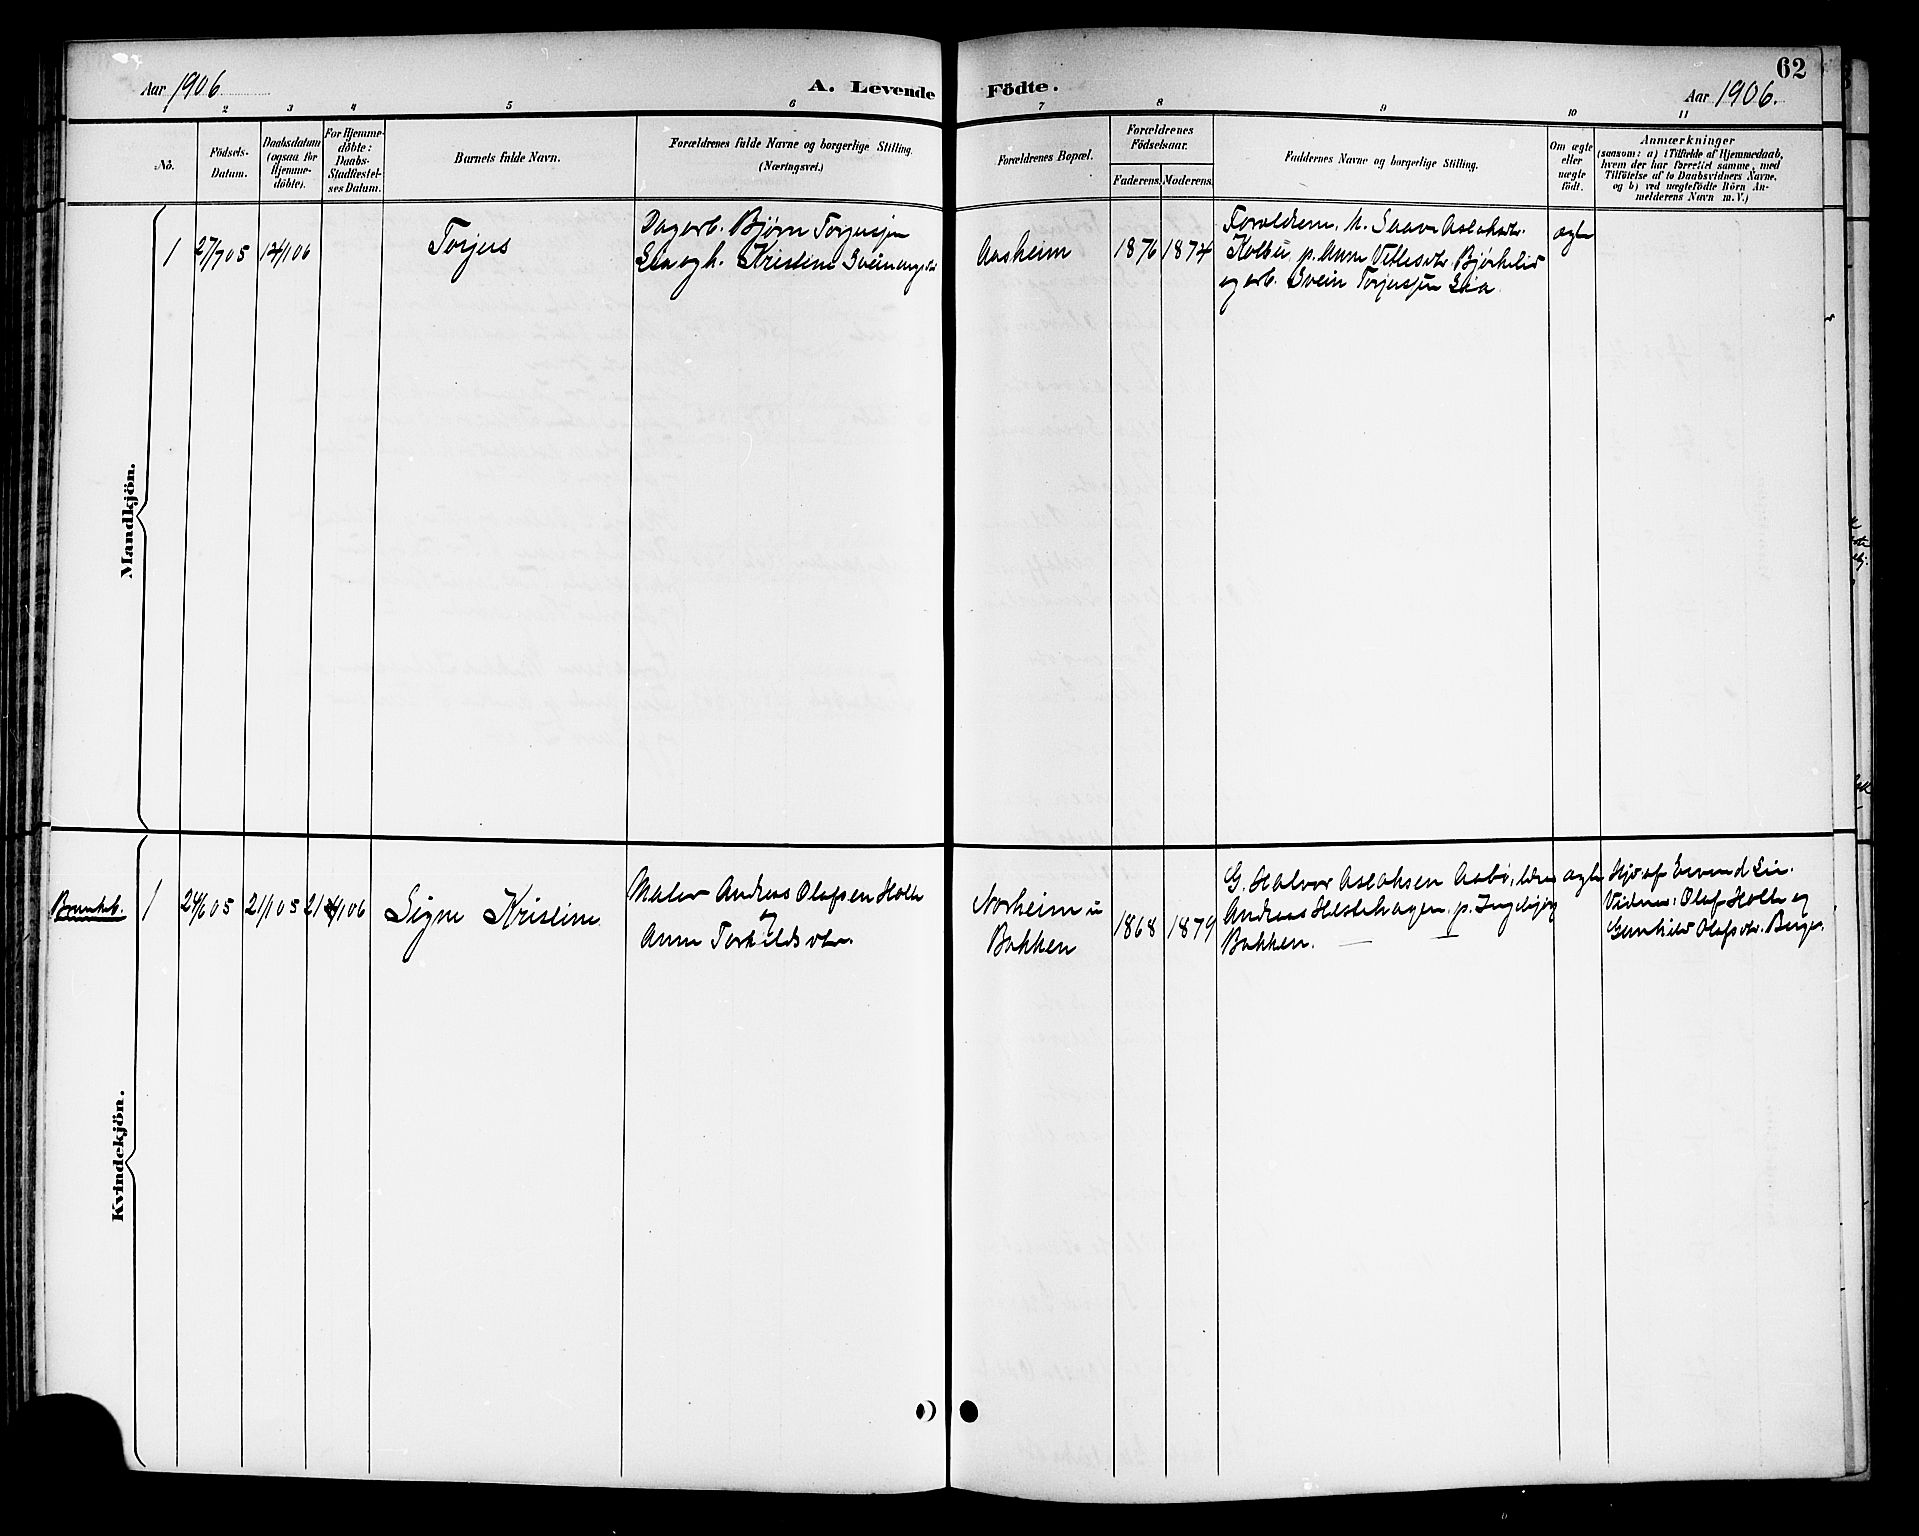 62
Aar 1906.
A. Levende Födte.
Aar 1906.
2 3 4 5 6 7 8 9 10 11
No.
Födsels-
Datum.
Daabsdatum
(ogsaa for
Hjemme-
döbte).
For Hjemme-
döbte:
Daabs-
Stadfæstel-
ses Datum.
Barnets fulde Navn.
Forældrenes fulde Navne og borgerlige Stilling.
(Næringsvei.)
Forældrenes Bopæl.
Forældrenes
Födselsaar.
Faderens. Moderens.
Faddernes Navne og borgerlige Stilling.
Om ægte
eller
uægte
födt.
Anmærkninger
(saasom: a) i Tilfælde af Hjemmedaab,
hvem der har forrettet samme, med
Tilföielse af to Daabsvidners Navne,
og b) ved uægtefödte Börn An-
melderens Navn m. V.)
Mandkjön.
1
27/7 05
14/1 06
Torjus
Dagarb. Bjørn Torjussen
Lia og h. Kristine Sveinungsdtr
Aasheim
1876 1874
Foreldrene, k. Saave Aslaksdtr.
Kolbu p. Anne Vetlesdtr. Bjørkelid
og arb. Svein Torjussen Lia
ægte
Kvindekjön.
Brunkeb.
1
24/6 05
21/1 05
21/4 06
Signe Kristine
Maler Andreas Olafsen Holte
og
Anne Torkildsdtr.
Norheim u
Bakken
1868 1879
G. Halvor Aslaksen Aabö,
Andreas Hestehagen, p. Ingebjørg
Bakken.
ægte
Hjd af Eivind Lie.
Vidner: Olaf Holte og
Gunhild Olafsdtr. Berge.